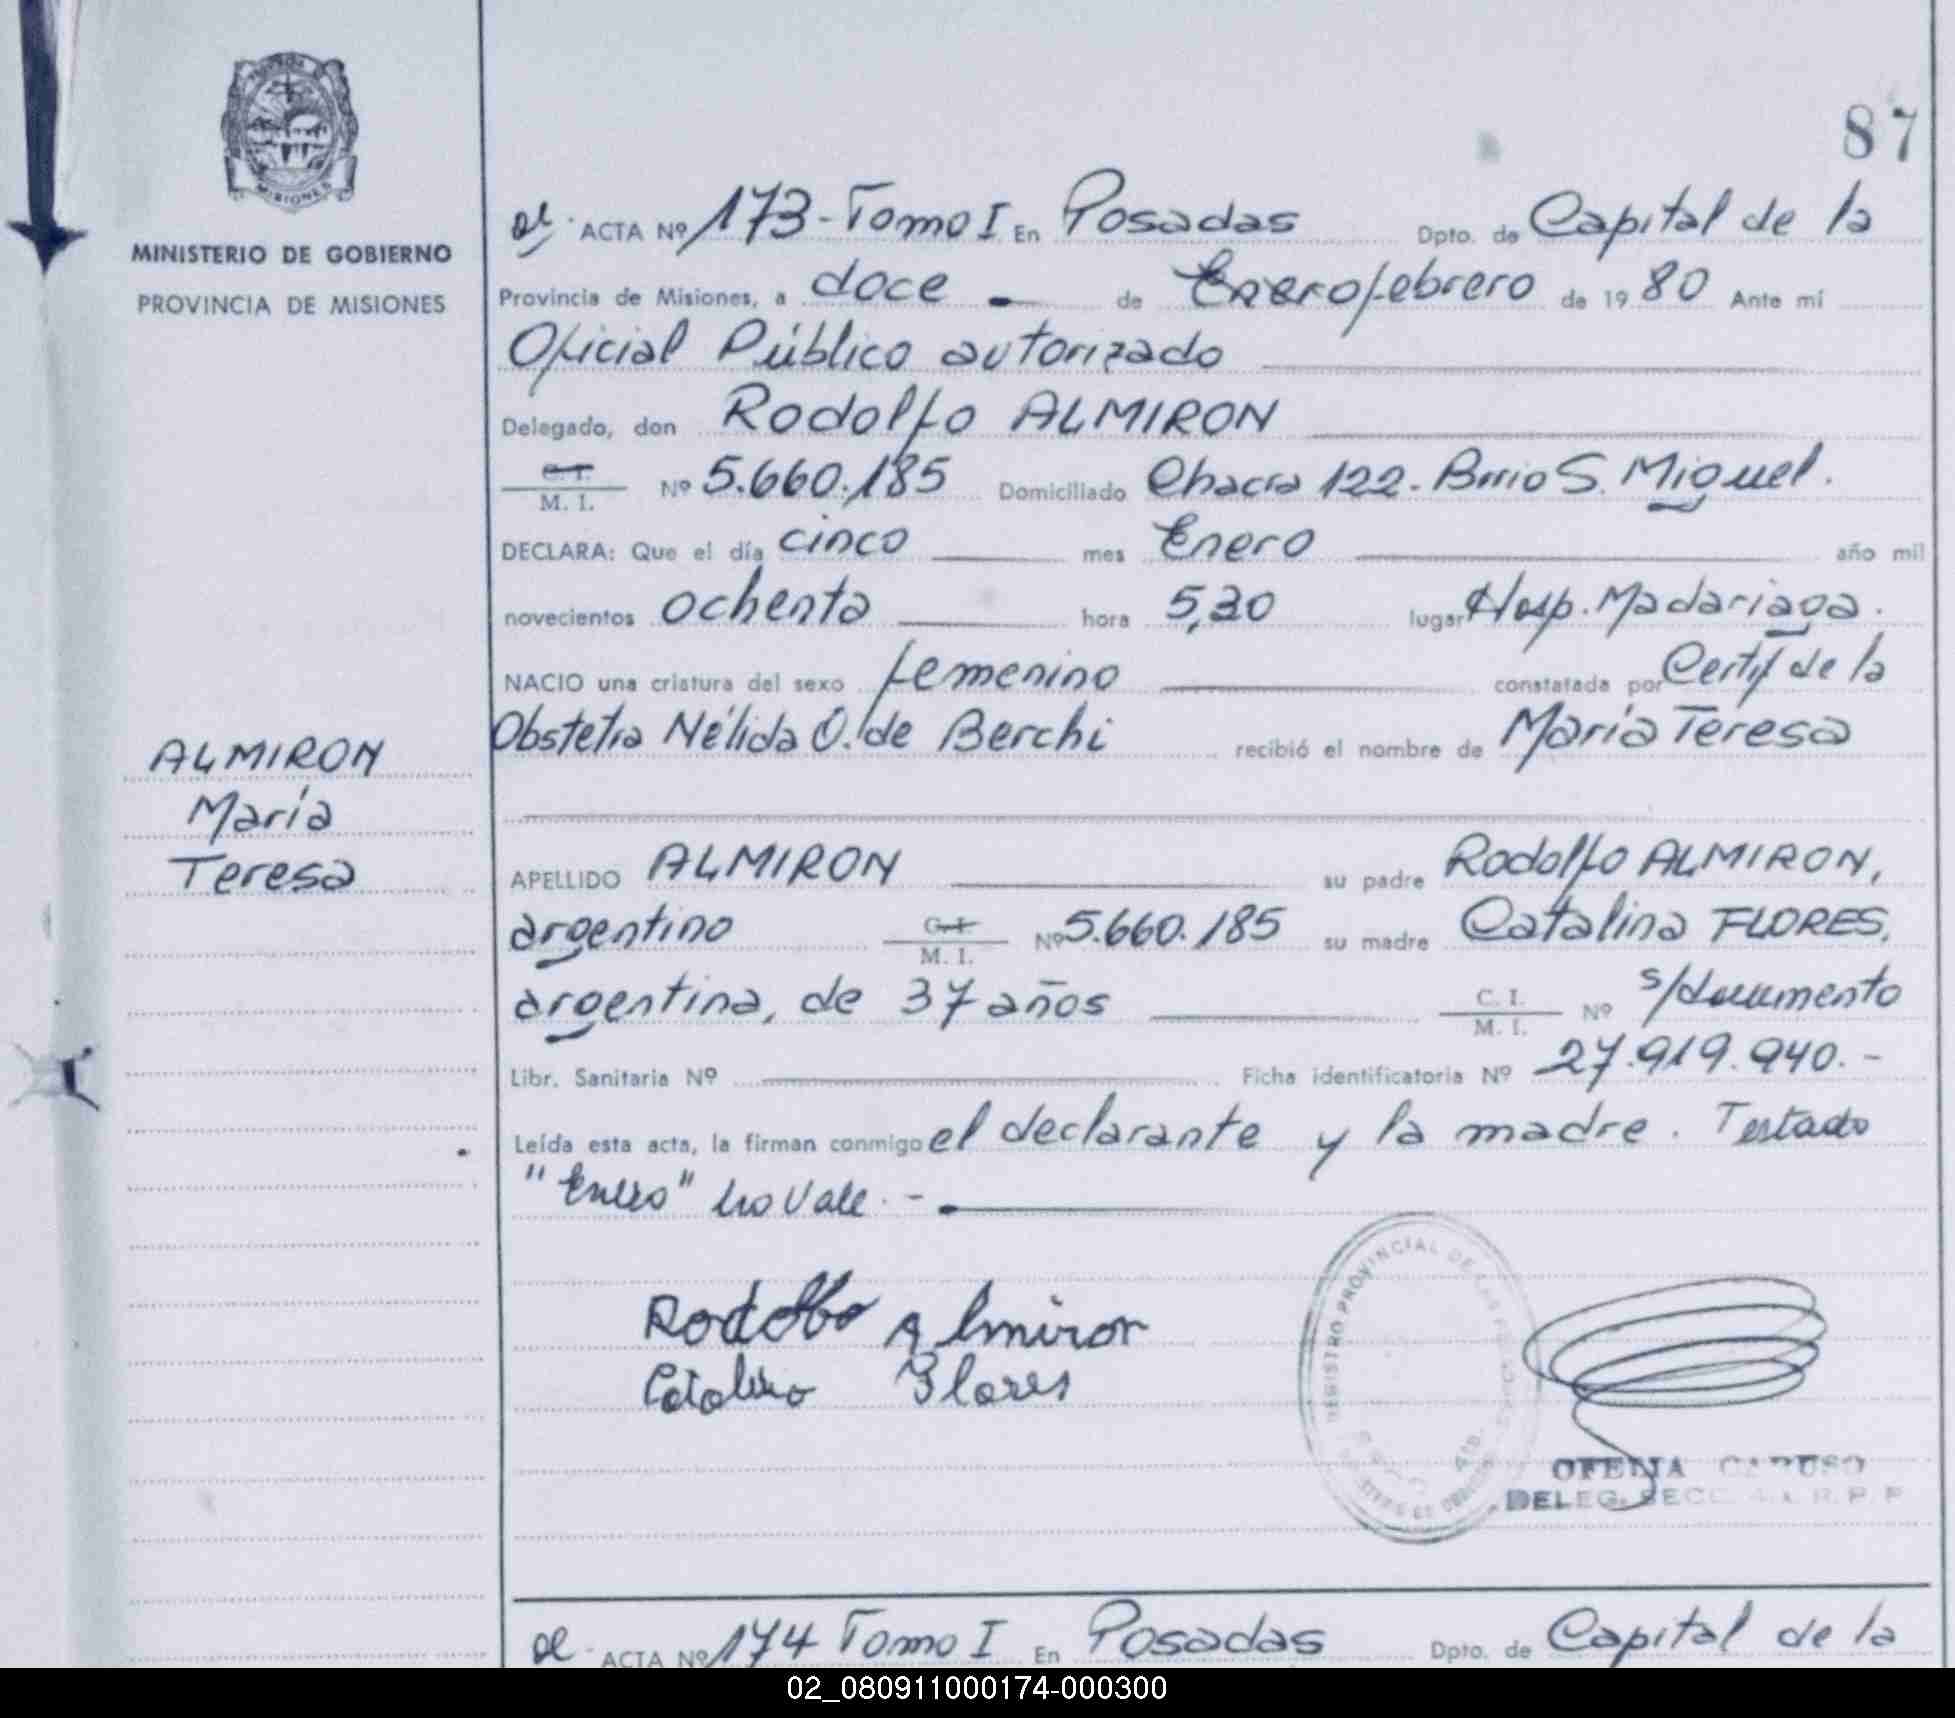 87
MISIONES
MINISTERIO DE GOBIERNO
PROVINCIA DE MISIONES
ACTA Nº 173 - Tomo I En Posadas Dpto. de Capital de la
Provincia de Misiones, a doce de Enero febrero de 1980 Ante mí
Oficial Público autorizado
Delegado, don Rodolfo ALMIRON
C. I.
M. I. Nº 5.660.185 Domiciliado Chacra 122. Brrio S. Miguel.
DECLARA: Que el día cinco mes Enero año mil
novecientos ochenta hora 5,30 lugar Hosp. Madariaga.
NACIO una criatura del sexo femenino constatada por Certif de la
Obstetra Nélida O. de Berchi recibió el nombre de María Teresa
ALMIRON
María
Teresa
APELLIDO ALMIRON su padre Rodolfo ALMIRON,
argentino C. I. Nº 5.660.185 su madre Catalina FLORES,
M. I.
argentina, de 37 años C. I. Nº s/documento
M. I.
Libr. Sanitaria Nº Ficha identificatoria Nº 27.919.940.-
Leída esta acta, la firman conmigo el declarante y la madre. Testado
"Enero" no Vale.-
Rodolfo Almiron
Catalina Flores
REGISTRO PROVINCIAL DE LAS PERSONAS
OFELIA CARUSO
DELEG. SECC. 4a. R. P. P.
ACTA Nº 174 Tomo I En Posadas Dpto. de Capital de la
02_080911000174-000300